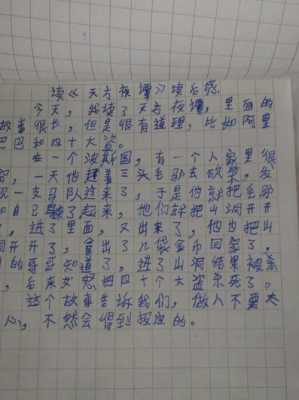 读《天方夜谭》读后感
今天，我读了天方夜谭，里面的
故事很长，但是很有道理，比如阿里
巴巴和四十大盗。
在一个波斯国，有一个人家里很
穷，一天他赶着三头毛驴去砍柴，发
现一支马队过来了，于是他就把毛驴
和自己藏了起来，他们就把山洞开开
，进了里面，又出来了，他也把山
洞开开了，拿出了几袋金币回家了。
的哥哥知道了，进了山洞结果被杀
，后来女把四十个大盗杀死了。
这个故事告诉我们，做人不要太
心，不然会得到报应的。